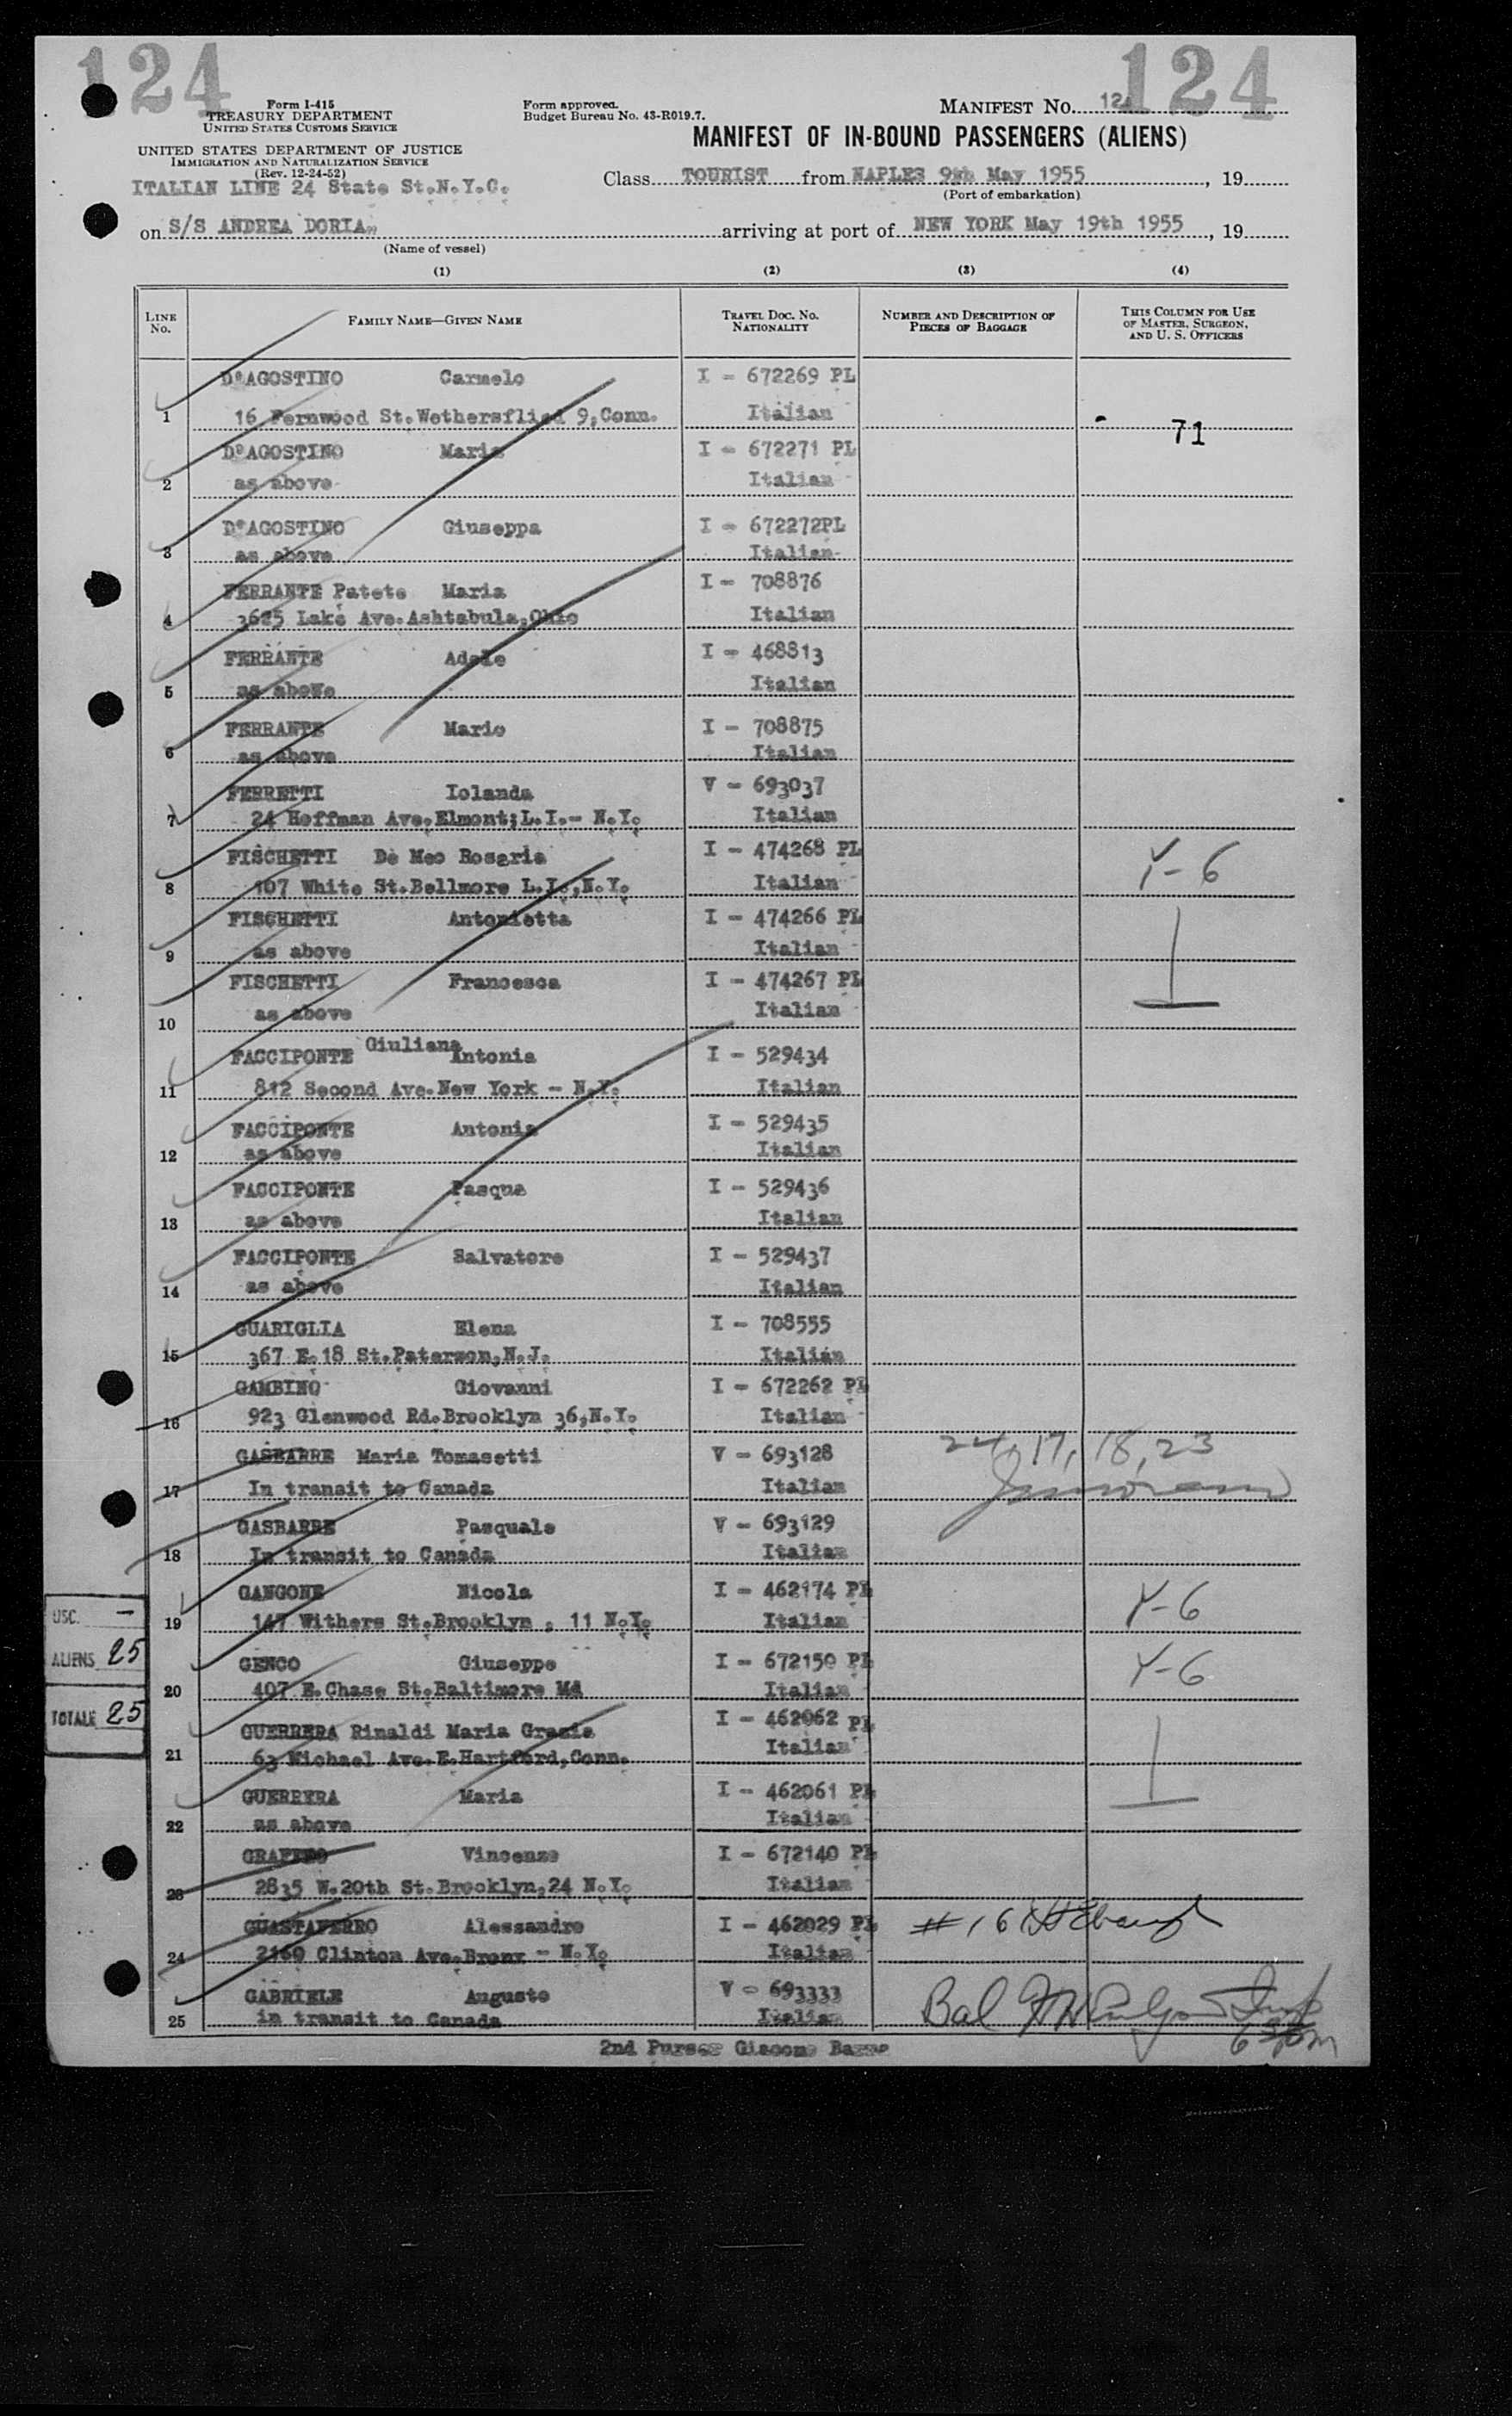 124
124
Form I-415
TREASURY DEPARTMENT
UNITED STATES CUSTOMS SERVICE
UNITED STATES DEPARTMENT OF JUSTICE
IMMIGRATION AND NATURALIZATION SERVICE
(Rev. 12-24-52)
ITALIAN LINE 24 State St.N.Y.C.
Form approved.
Budget Bureau No. 43-R019.7.
MANIFEST No. 124
MANIFEST OF IN-BOUND PASSENGERS (ALIENS)
Class TOURIST from NAPLES 9th May 1955, 19
(Port of embarkation)
on S/S ANDREA DORIA,, arriving at port of NEW YORK May 19th 1955, 19
(Name of vessel)
(1) (2) (3) (4)
LINE No. FAMILY NAME—GIVEN NAME TRAVEL DOC. No. NATIONALITY NUMBER AND DESCRIPTION OF PIECES OF BAGGAGE THIS COLUMN FOR USE OF MASTER, SURGEON, AND U. S. OFFICERS
D'AGOSTINO Carmelo I - 672269 PL
1 16 Fernwood St.Wethersflied 9,Conn. Italian 71
D'AGOSTINO Maria I - 672271 PL
2 as above Italian
D'AGOSTINO Giuseppa I - 672272PL
3 as above Italian
FERRANTE Patete Maria I - 708876
4 3625 Lake Ave.Ashtabula,Ohio Italian
FERRANTE Adele I - 468813
5 as above Italian
FERRANTE Mario I - 708875
6 as above Italian
FERRETTI Iolanda V - 693037
7 24 Hoffman Ave.Elmont;L.I.- N.Y. Italian
FISCHETTI De Meo Rosaria I - 474268 PL Y-6
8 107 White St.Bellmore L.I.,N.Y. Italian
FISCHETTI Antonietta I - 474266 PL
9 as above Italian
FISCHETTI Francesca I - 474267 PL
10 as above Italian
FACCIPONTE Giuliana Antonia I - 529434
11 812 Second Ave.New York - N.Y. Italian
FACCIPONTE Antonia I - 529435
12 as above Italian
FACCIPONTE Pasqua I - 529436
13 as above Italian
FACCIPONTE Salvatore I - 529437
14 as above Italian
GUARIGLIA Elena I - 708555
15 367 E.18 St.Paterson,N.J. Italian
GAMBINO Giovanni I - 672262 PL
16 923 Glenwood Rd.Brooklyn 36,N.Y. Italian
GASBARRE Maria Tomasetti V - 693128 24, 17, 18, 23
17 In transit to Canada Italian
GASBARRE Pasquale V - 693129
18 In transit to Canada Italian
GANGONE Nicola I - 462174 PL Y-6
19 147 Withers St.Brooklyn , 11 N.Y. Italian
GENCO Giuseppe I - 672150 PL Y-6
20 407 E.Chase St.Baltimore Md Italian
GUERRERA Rinaldi Maria Grazia I - 462062 PL
21 63 Michael Ave.E.Hartford,Conn. Italian
GUERRERA Maria I - 462061 PL
22 as above Italian
Vincenzo I - 672140 PL
23 2835 W.20th St.Brooklyn,24 N.Y. Italian
GUASTAFERRO Alessandro I - 462029 PL # 16
24 2160 Clinton Ave.Bronx - N.Y. Italian
GABRIELE Augusto V - 693333 Bal
25 in transit to Canada Italian
USC. -
ALIENS 25
TOTALE 25
2nd Purser Giacomo